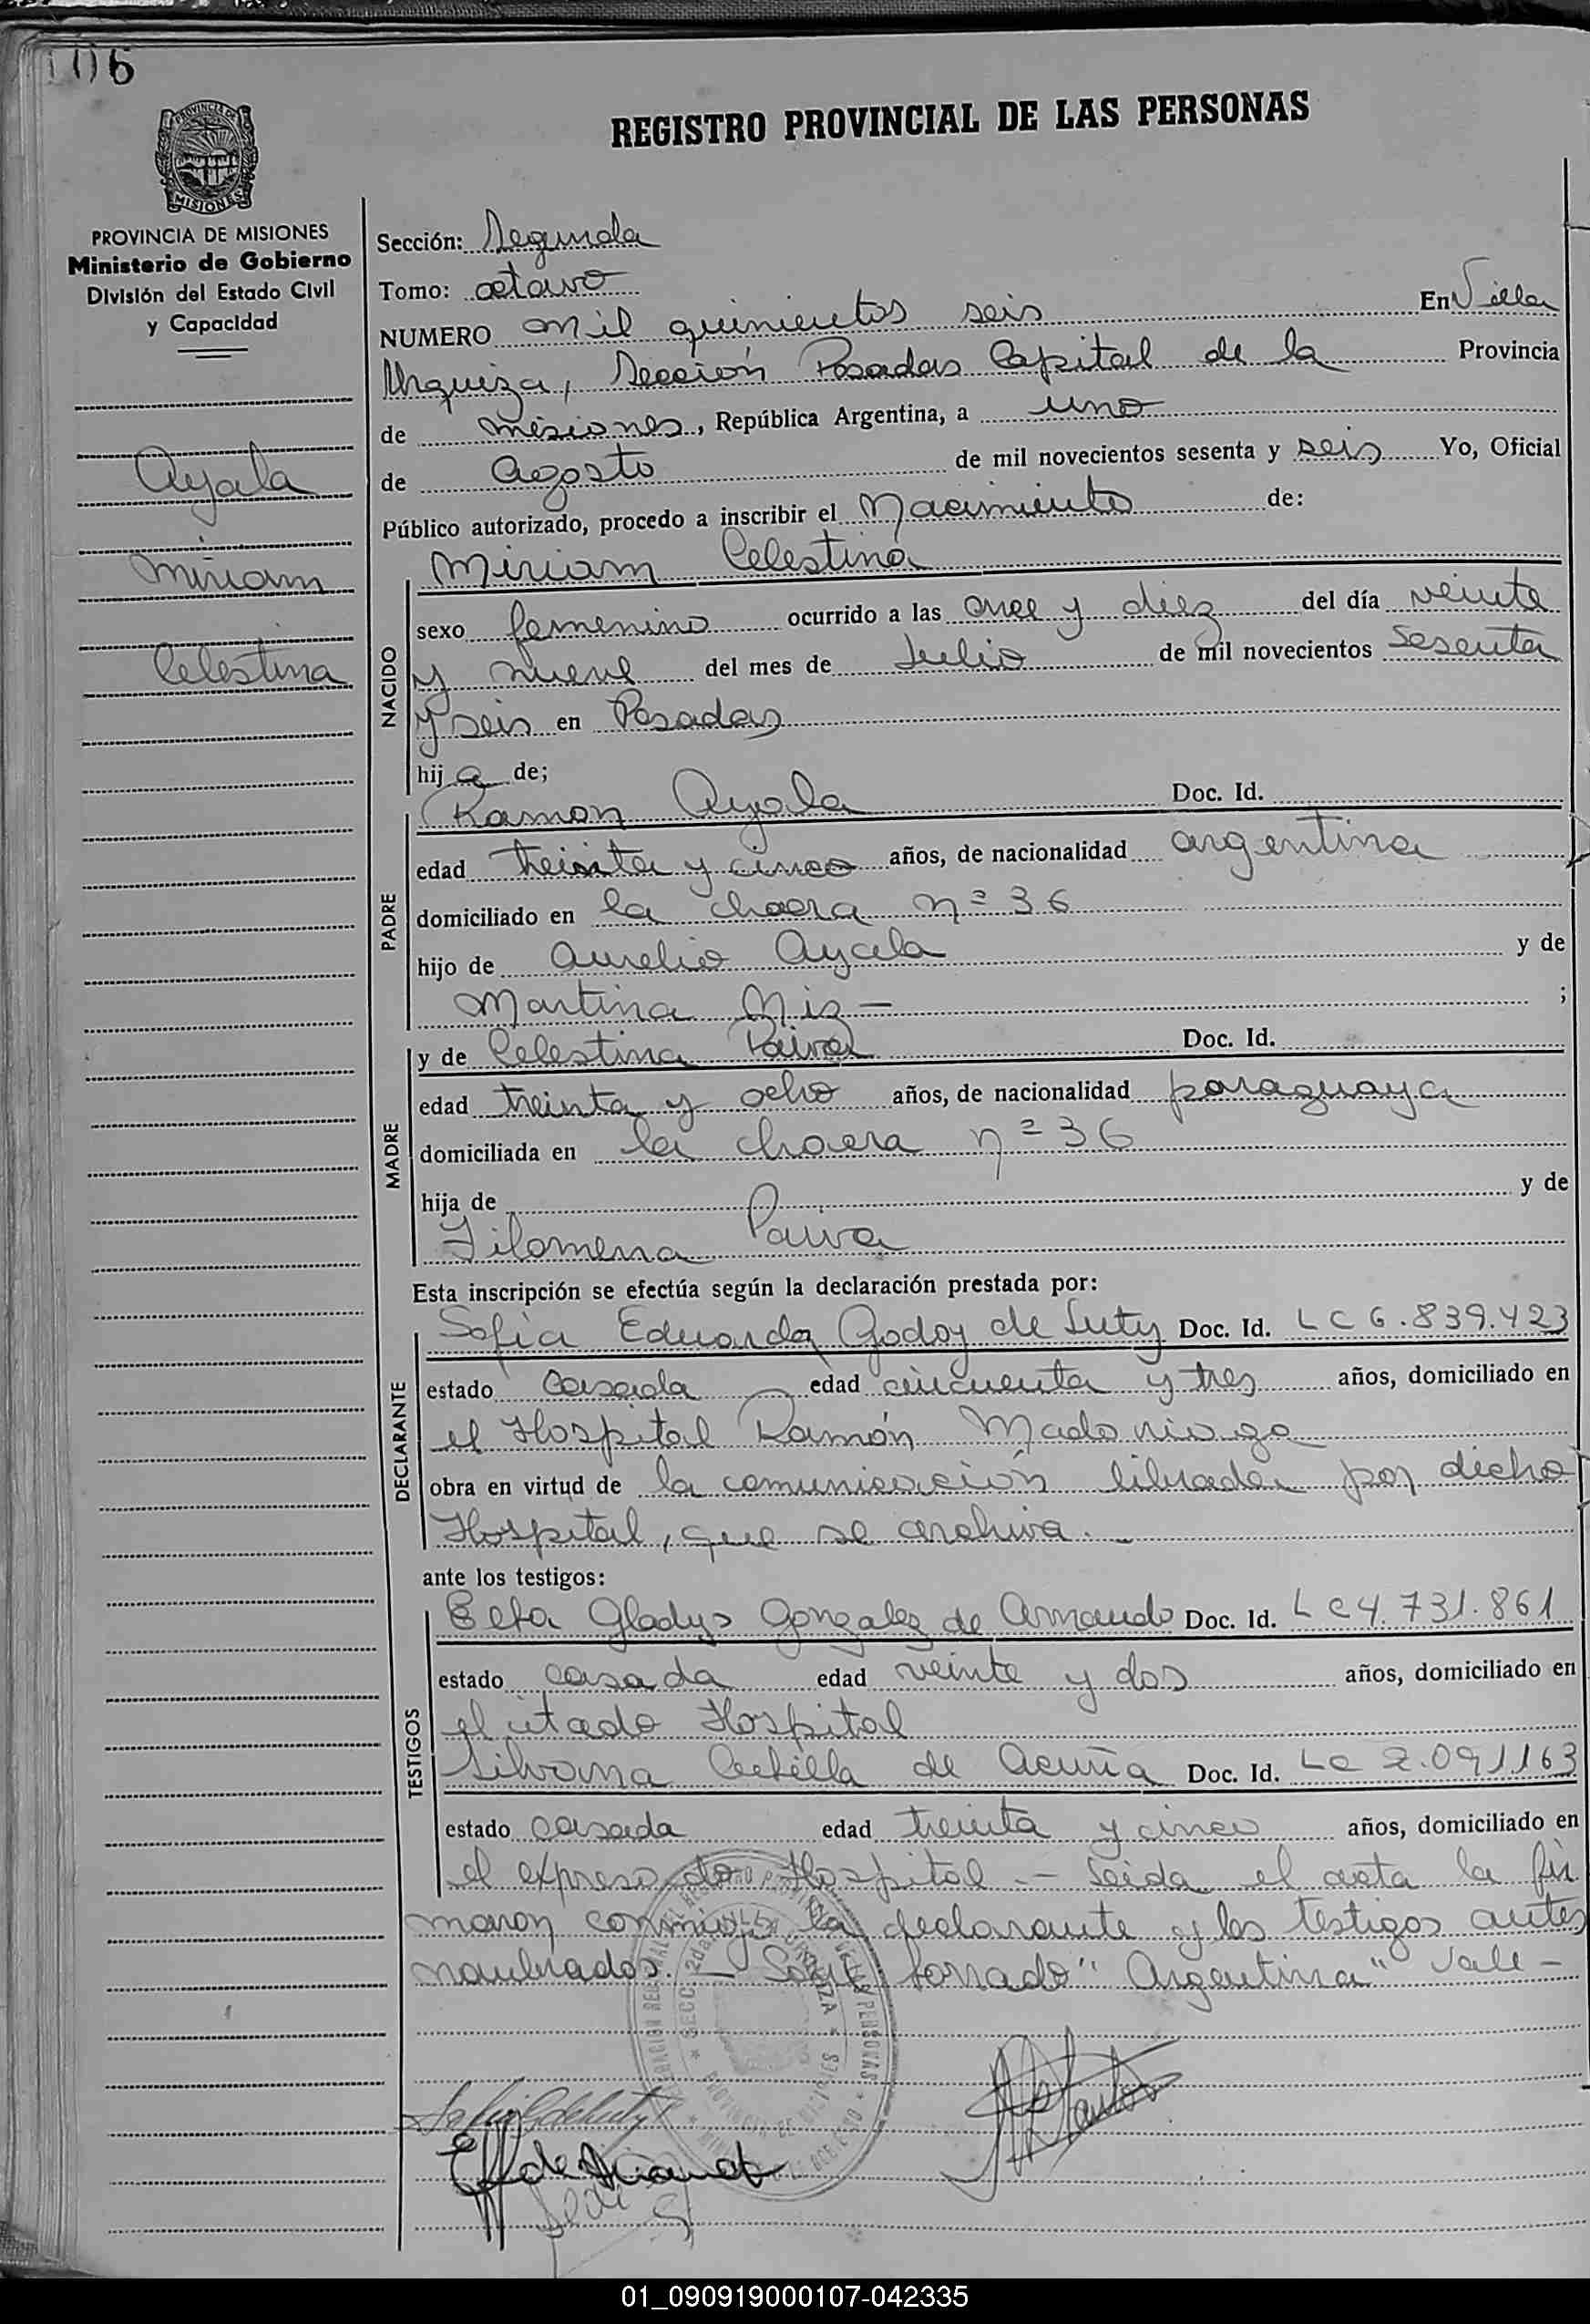 106
PROVINCIA DE MISIONES
Ministerio de Gobierno
División del Estado Civil
y Capacidad
Ayala
Miriam
Celestina
REGISTRO PROVINCIAL DE LAS PERSONAS
Sección: Segunda
Tomo: octavo
NUMERO mil quinientos seis En Villa
Urquiza, Sección Posadas Capital de la Provincia
de misiones, República Argentina, a uno
de agosto de mil novecientos sesenta y seis Yo, Oficial
Público autorizado, procedo a inscribir el Nacimiento de:
Miriam Celestina
NACIDO
sexo femenino ocurrido a las once y diez del día veinte
y nueve del mes de Julio de mil novecientos sesenta
y seis en Posadas
hija de;
PADRE
Ramon Ayala Doc. Id.
edad treinta y cinco años, de nacionalidad argentina
domiciliado en la chacra nº 36
hijo de Aurelio Ayala y de
Martina Miz - ;
MADRE
y de Celestina Paiva Doc. Id.
edad treinta y ocho años, de nacionalidad paraguaya
domiciliada en la chacra nº 36
hija de y de
Filomena Paiva
Esta inscripción se efectúa según la declaración prestada por:
DECLARANTE
Sofia Eduarda Godoy de Luty Doc. Id. LC 6.839.423
estado casada edad cincuenta y tres años, domiciliado en
el Hospital Ramón Madariaga
obra en virtud de la comunicación librada por dicho
Hospital, que se archiva.
ante los testigos:
TESTIGOS
Gladys Gonzalez de Doc. Id. LC 4.731.861
estado casada edad veinte y dos años, domiciliado en
el citado Hospital
Silvana de Acuña Doc. Id. LC 2.091163
estado casada edad treinta y cinco años, domiciliado en
el expresado Hospital. - Leida el acta la fir
maron conmigo la declarante y los testigos antes
nombrados. - Sobre borrado "Argentina" Vale -
01_090919000107-042335